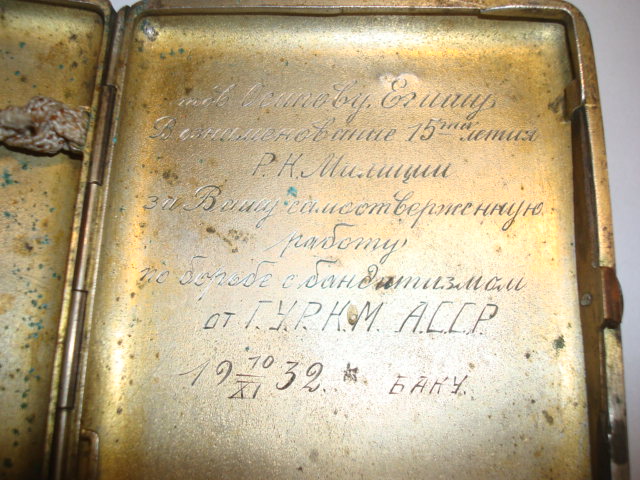 тов Осипову Егишу
В ознаменование 15тий летия
Р.К. Милиции
за Вашу самоотверженную
работу
по борьбе с бандитизмом
от Г.У.Р.К.М. А.С.С.Р.
19 10/XI 32. БАКУ.